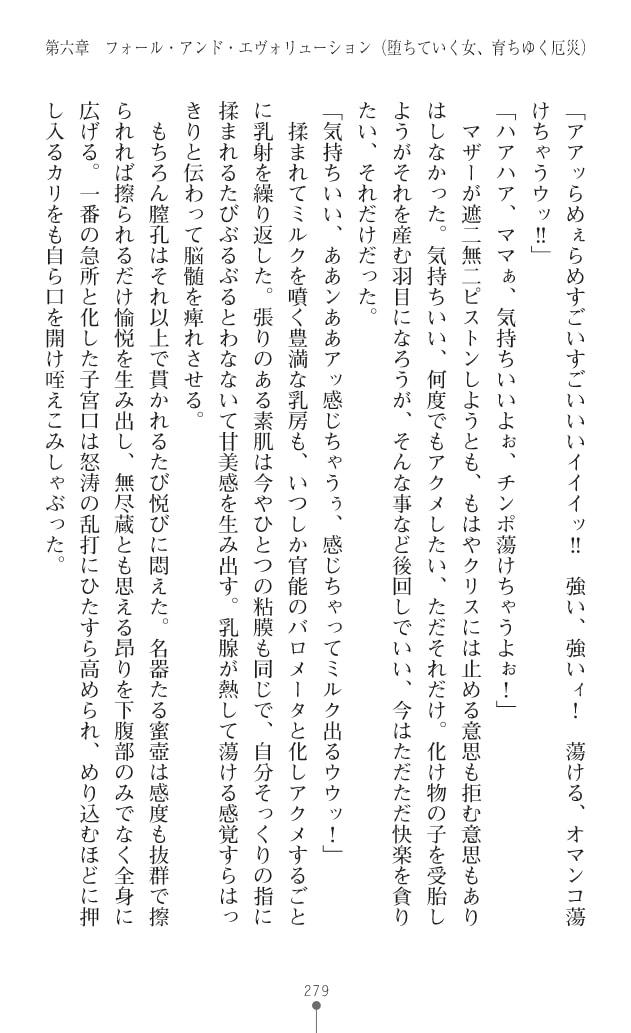 第六章　フォール・アンド・エヴォリューション（堕ちていく女、育ちゆく厄災）
「アアッらめぇらめすごいすごいいいイイイッ!!　強い、強いィ！　蕩ける、オマンコ蕩
けちゃうウッ!!」
「ハアハア、ママぁ、気持ちいいよぉ、チンポ蕩けちゃうよぉ！」
　マザーが遮二無二ピストンしようとも、もはやクリスには止める意思も拒む意思もあり
はしなかった。気持ちいい、何度でもアクメしたい、ただそれだけ。化け物の子を受胎し
ようがそれを産む羽目になろうが、そんな事など後回しでいい、今はただただ快楽を貪り
たい、それだけだった。
「気持ちいい、ああンああアッ感じちゃうぅ、感じちゃってミルク出るウウッ！」
　揉まれてミルクを噴く豊満な乳房も、いつしか官能のバロメータと化しアクメするごと
に乳射を繰り返した。張りのある素肌は今やひとつの粘膜も同じで、自分そっくりの指に
揉まれるたびぶるぶるとわなないて甘美感を生み出す。乳腺が熱して蕩ける感覚すらはっ
きりと伝わって脳髄を痺れさせる。
　もちろん膣孔はそれ以上で貫かれるたび悦びに悶えた。名器たる蜜壺は感度も抜群で擦
られれば擦られるだけ愉悦を生み出し、無尽蔵とも思える昂りを下腹部のみでなく全身に
広げる。一番の急所と化した子宮口は怒涛の乱打にひたすら高められ、めり込むほどに押
し入るカリをも自ら口を開け咥えこみしゃぶった。
279